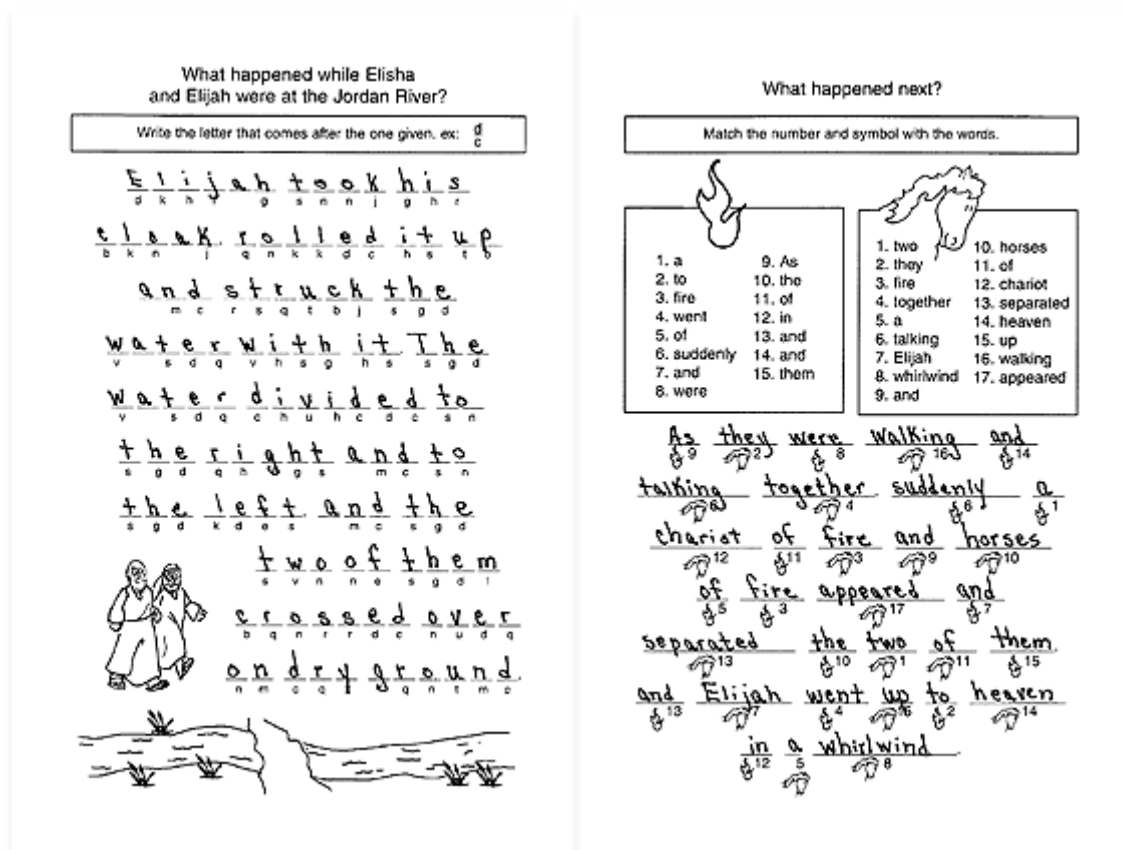 What happened while Elisha
and Elijah were at the Jordan River?
Write the letter that comes after the one given. ex: d
c
Elijah took his
d k h i g s n n j g h r
cloak, rolled it up
b k n j q n k k d c h s t o
and struck the
m c r s q t b j s g d
water with it. The
v s d q v h s g h s s g d
water divided to
v s d q c h u h c d c s n
the right and to
s g d q h g s m c s n
the left, and the
s g d k d e s m c s g d
two of them
s v n n e s g d l
crossed over
b q n r r d c n u d q
on dry ground.
n m c q q n t m c
What happened next?
Match the number and symbol with the words.
1. a
2. to
3. fire
4. went
5. of
6. suddenly
7. and
8. were
9. As
10. the
11. of
12. in
13. and
14. and
15. them
1. two
2. they
3. fire
4. together
5. a
6. talking
7. Elijah
8. whirlwind
9. and
10. horses
11. of
12. chariot
13. separated
14. heaven
15. up
16. walking
17. appeared
As they were walking and
9 2 8 16 14
talking together, suddenly a
6 4 6 1
chariot of fire and horses
12 11 3 9 10
of fire appeared and
5 3 17 7
separated the two of them,
13 10 1 11 15
and Elijah went up to heaven
13 7 4 15 2 14
in a whirlwind.
12 5 8